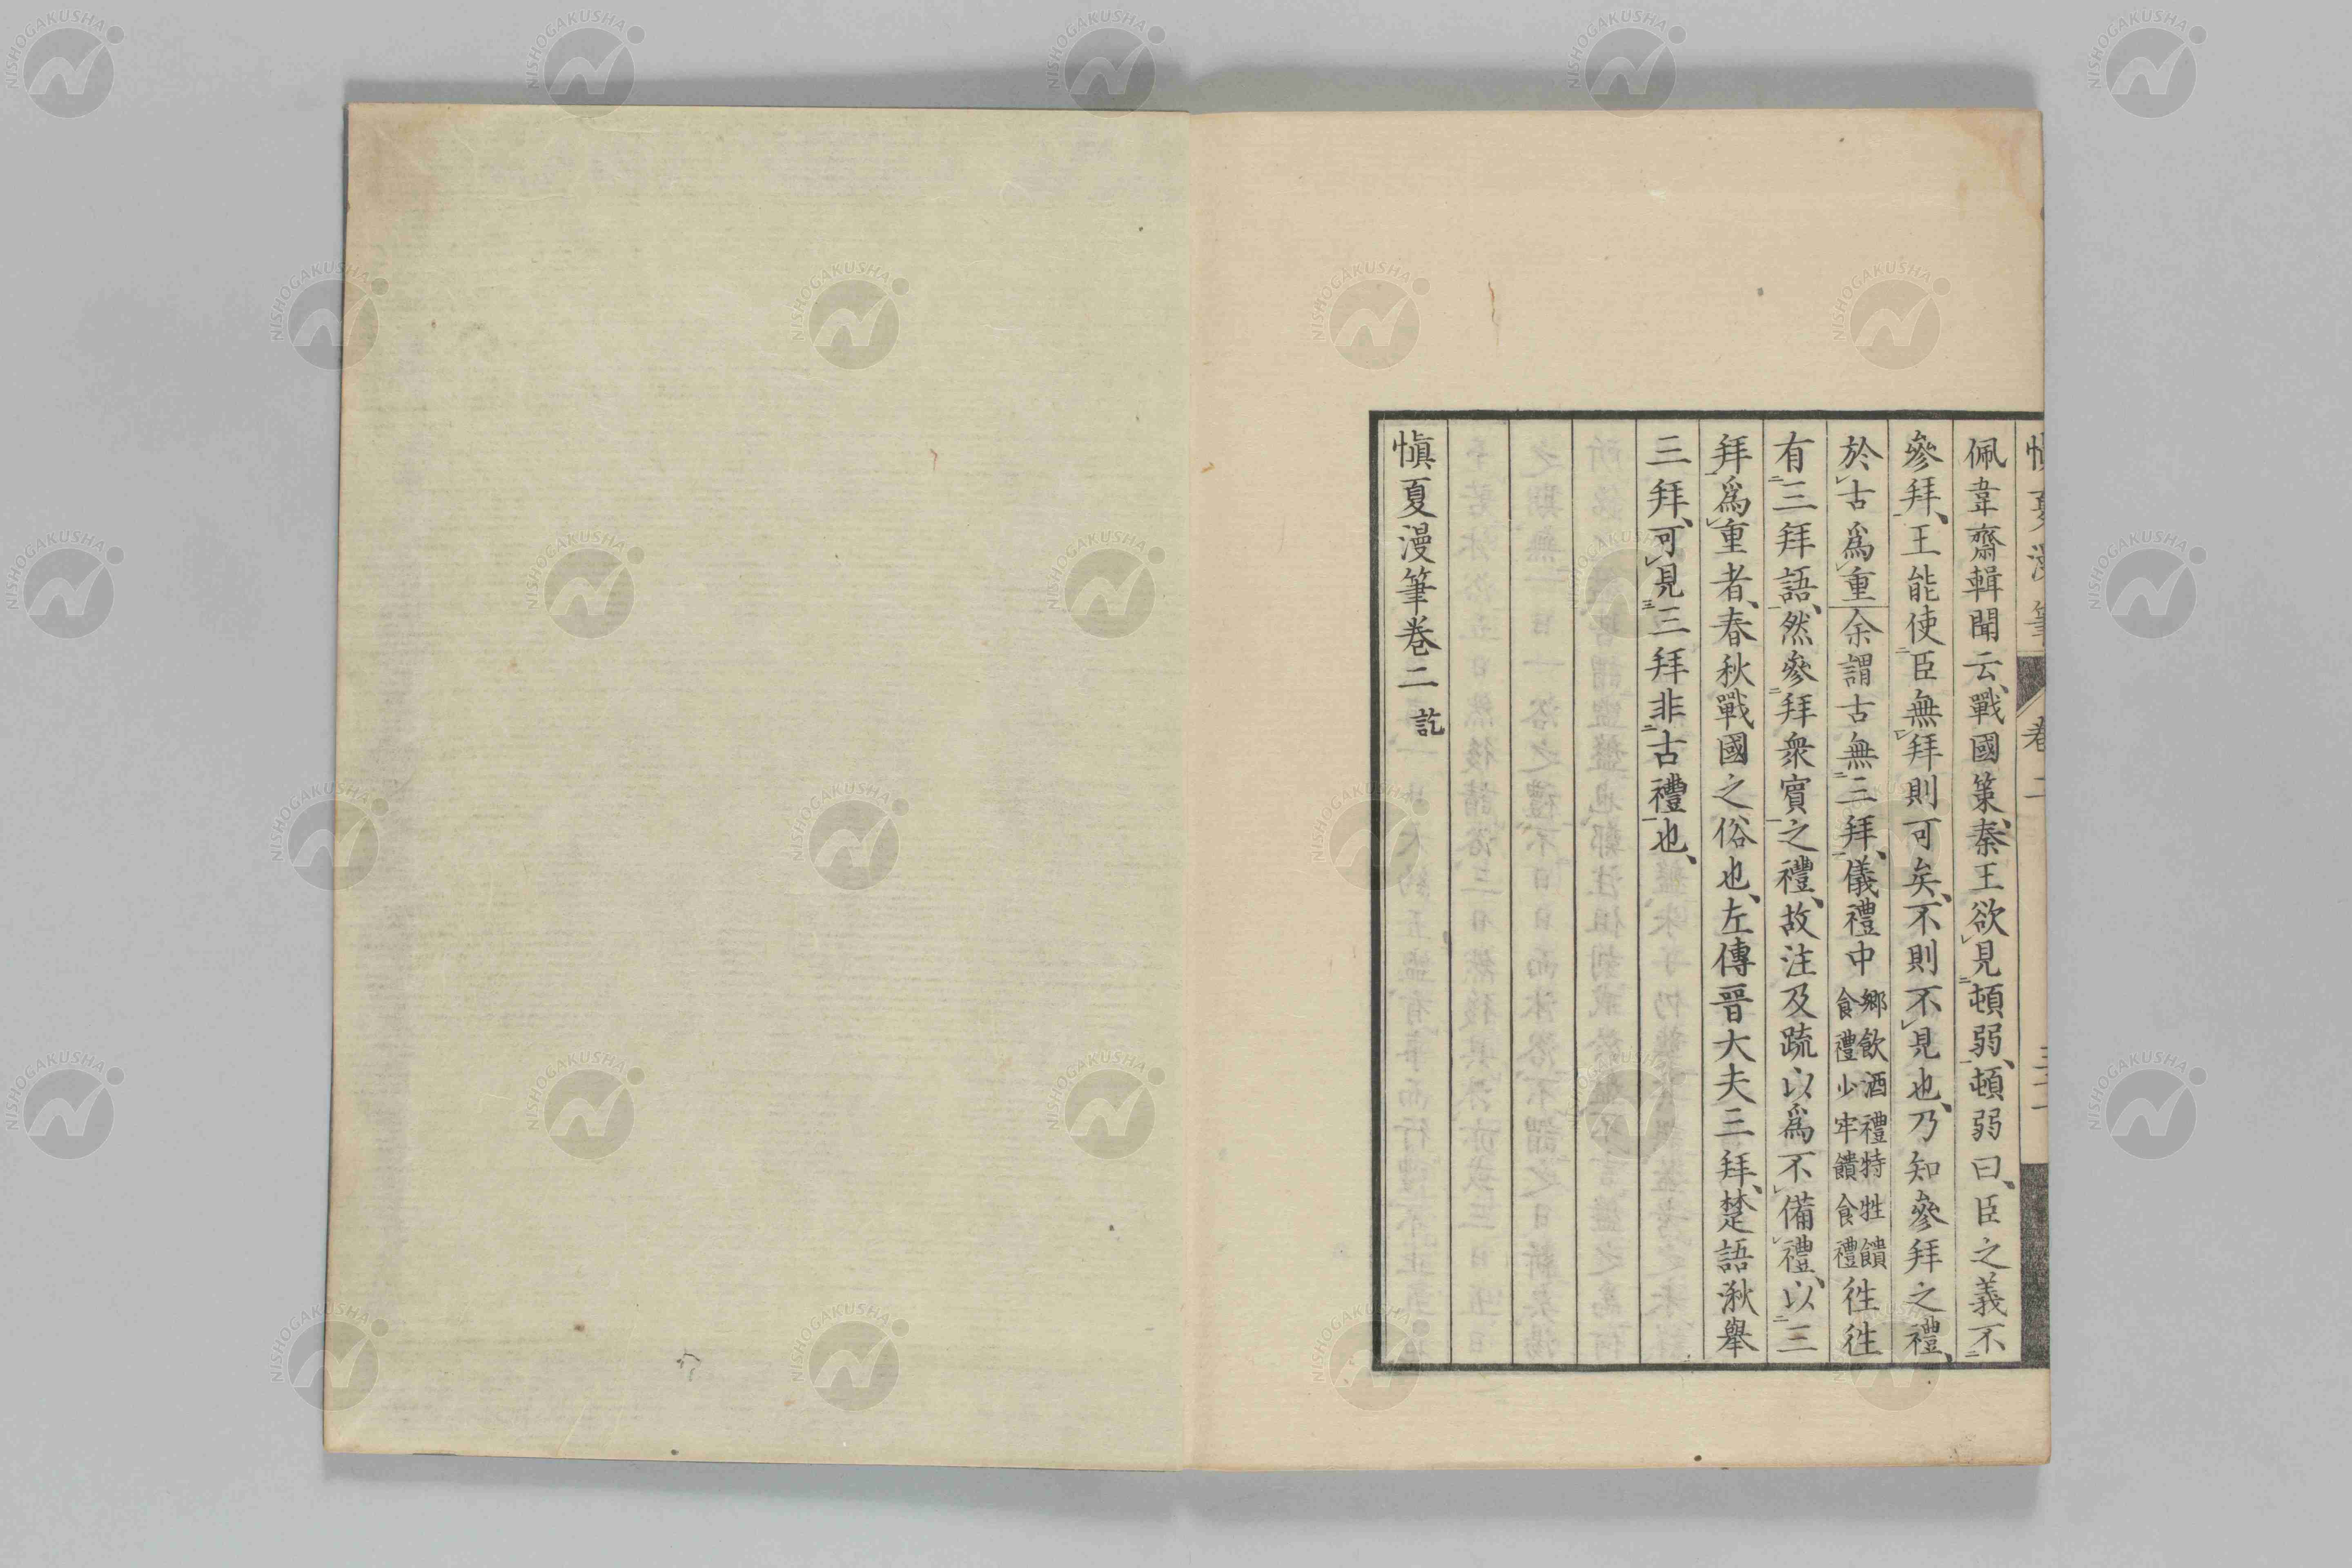 愼夏漫筆 卷二
佩韋齋輯聞云、戰國策、秦王欲㆑見㆓頓弱㆒、頓弱曰、臣之義不㆓
參拜㆒、王能使㆓臣無㆑拜則可矣、不則不㆑見也、乃知參拜之禮、
於㆑古爲㆑重余謂古無㆓三拜㆒、儀禮中鄉飮酒禮特牲饋食禮少牢饋食禮徃徃
有㆓三拜語㆒、然參㆓拜衆賓㆒之禮、故注及疏以爲不㆑備㆑禮、以㆓三
拜㆒爲㆑重者、春秋戰國之俗也、左傳晉大夫三拜、楚語湫舉
三拜、可㆑見㆔三拜非㆓古禮㆒也、
愼夏漫筆卷二訖
NISHOGAKUSHA